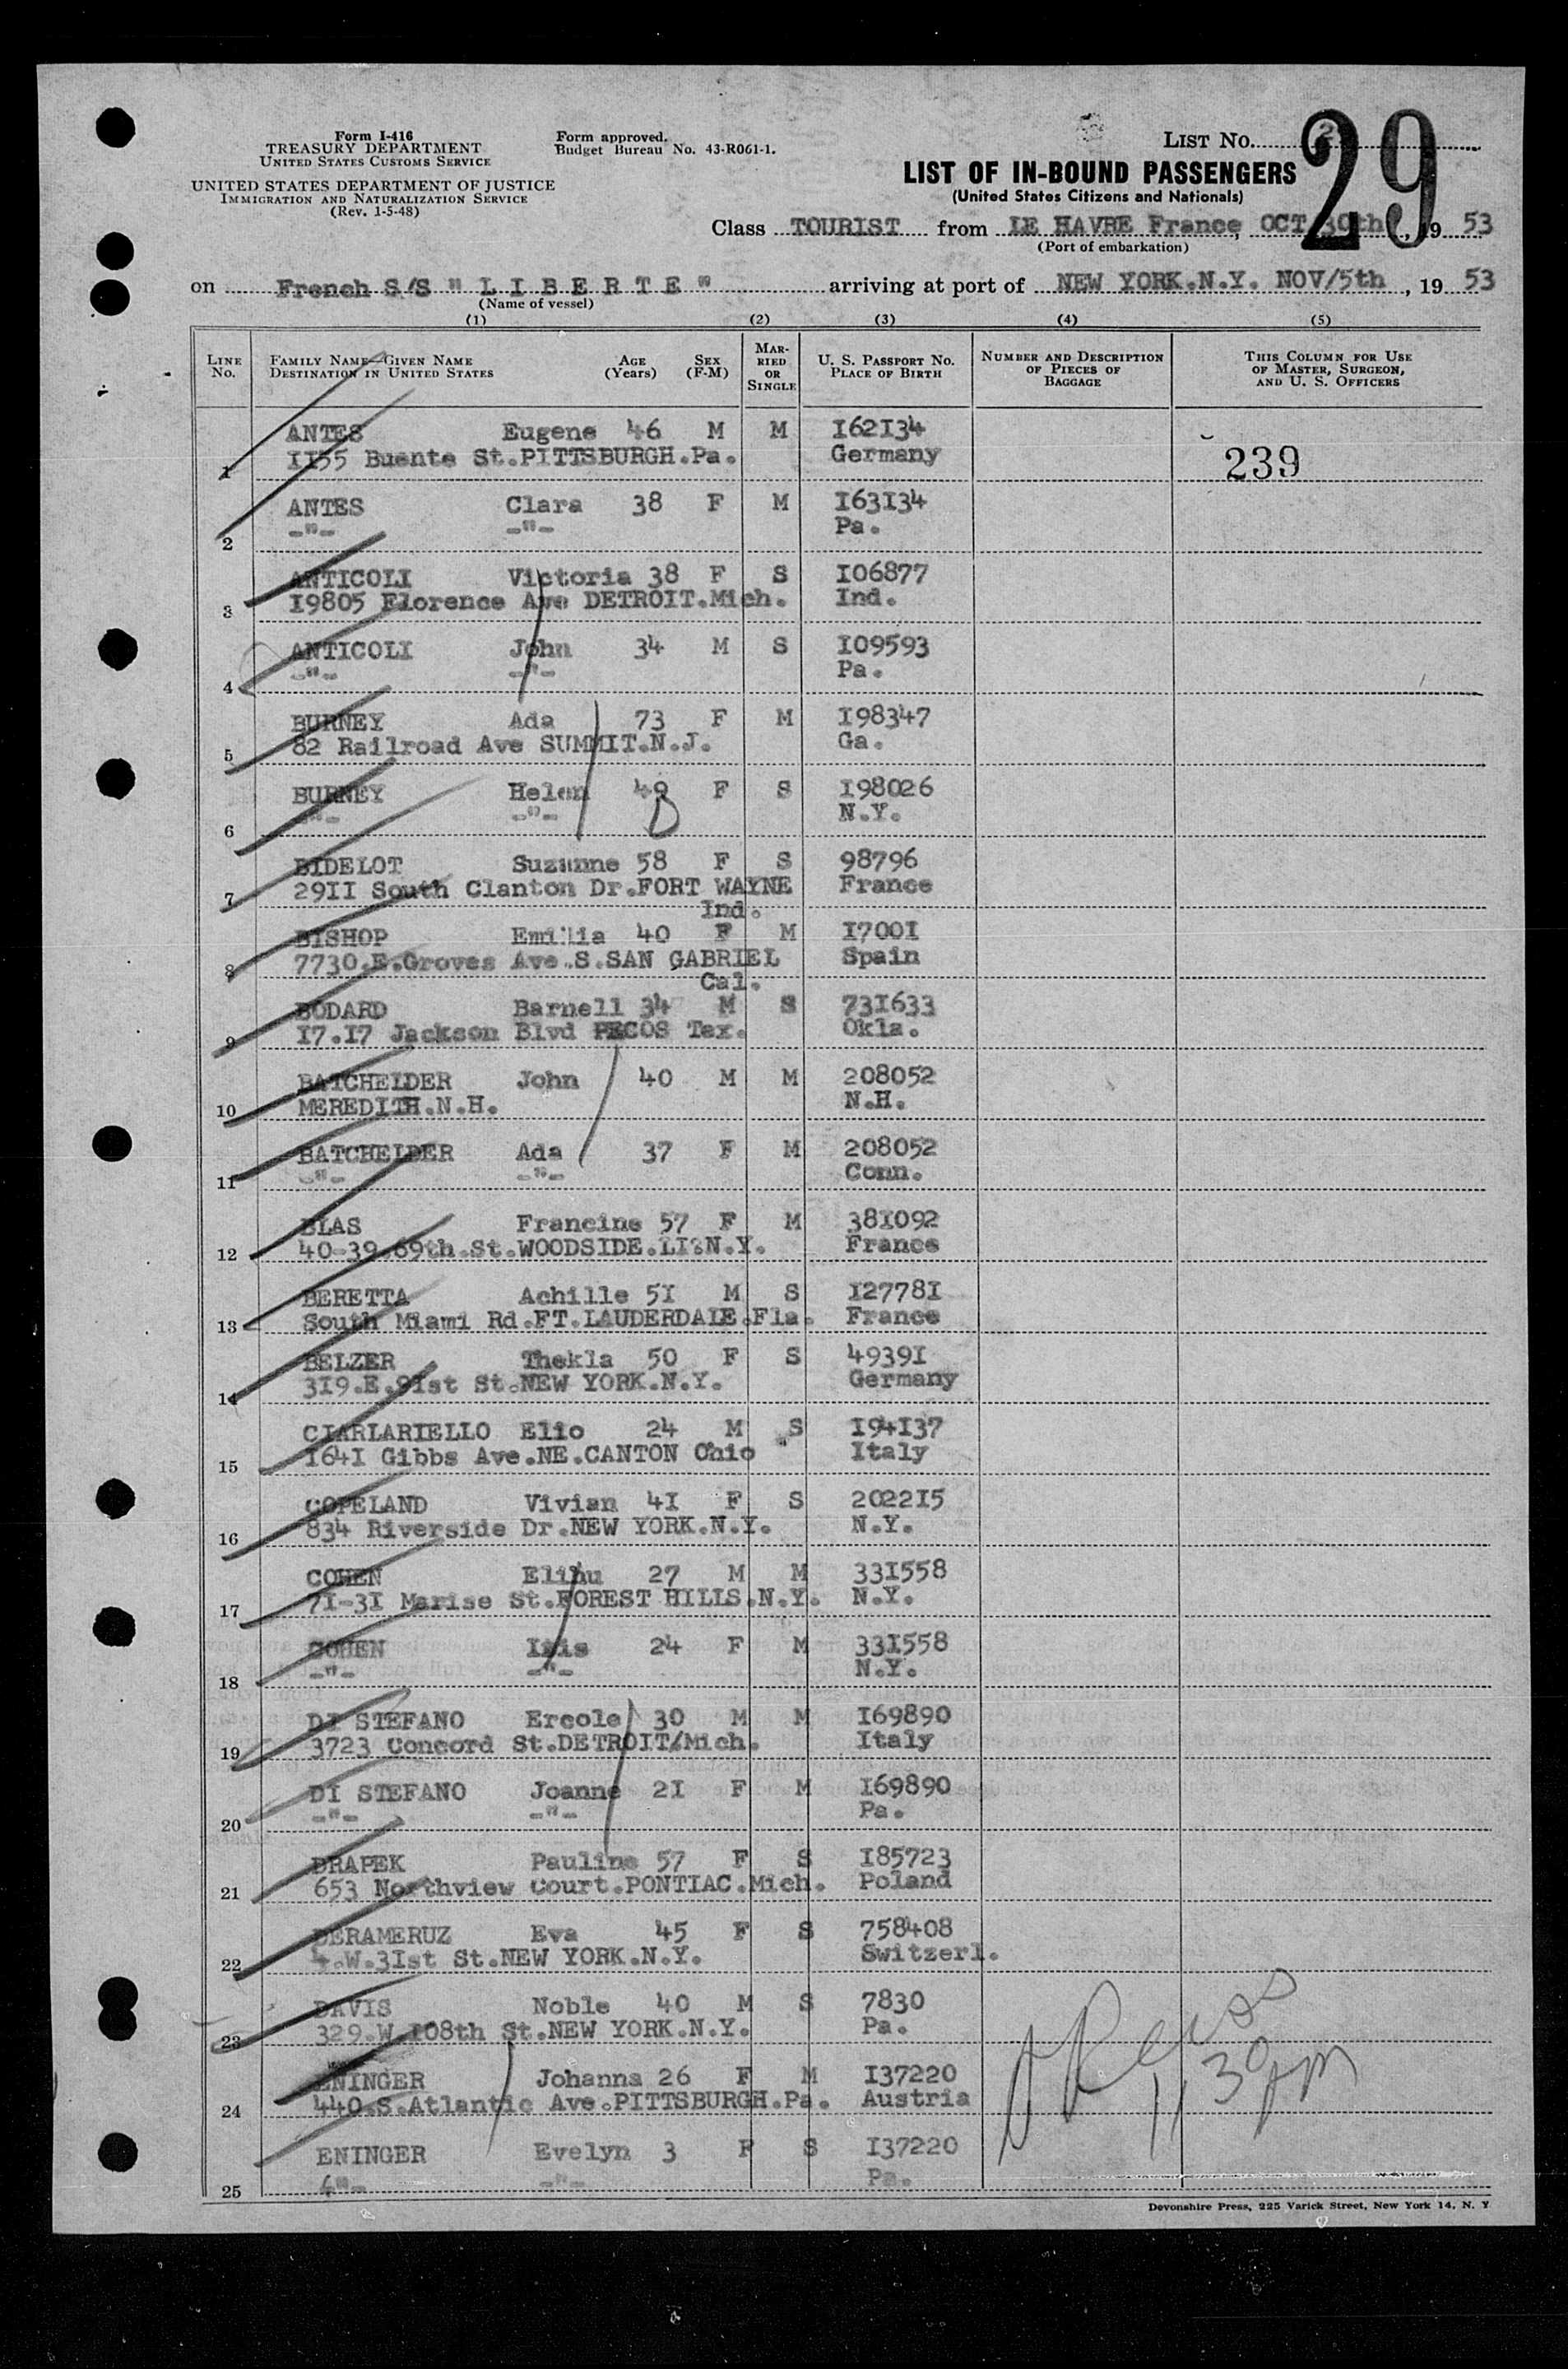 Form I-416
TREASURY DEPARTMENT
UNITED STATES CUSTOMS SERVICE
UNITED STATES DEPARTMENT OF JUSTICE
IMMIGRATION AND NATURALIZATION SERVICE
(Rev. 1-5-48)
Form approved.
Budget Bureau No. 43-R061-1.
LIST NO. 29
LIST OF IN-BOUND PASSENGERS
(United States Citizens and Nationals)
Class TOURIST from LE HAVRE France, OCT 30th, 19 53
(Port of embarkation)
on French S/S " L I B E R T E " arriving at port of NEW YORK.N.Y. NOV/5th, 19 53
(Name of vessel)
(1) (2) (3) (4) (5)
LINE NO. FAMILY NAME—GIVEN NAME DESTINATION IN UNITED STATES AGE (Years) SEX (F-M) MARRIED OR SINGLE U. S. PASSPORT NO. PLACE OF BIRTH NUMBER AND DESCRIPTION OF PIECES OF BAGGAGE THIS COLUMN FOR USE OF MASTER, SURGEON, AND U. S. OFFICERS
ANTES Eugene 46 M M 162134
1 1155 Buente St.PITTSBURGH.Pa. Germany 239
ANTES Clara 38 F M 163134
2 -"- -"- Pa.
ANTICOLI Victoria 38 F S 106877
3 19805 Florence Ave DETROIT.Mich. Ind.
ANTICOLI John 34 M S 109593
4 -"- -"- Pa.
BURNEY Ada 73 F M 198347
5 82 Railroad Ave SUMMIT.N.J. Ga.
BURNEY Helen F S 198026
6 -"- -"- N.Y.
BIDELOT Suzanne 58 F S 98796
7 2911 South Clanton Dr.FORT WAYNE France
Ind.
BISHOP Emilia 40 F M 17001
8 7730.E.Groves Ave.S.SAN GABRIEL Spain
Cal.
BODARD Barnell 34 M S 731633
9 17.17 Jackson Blvd PECOS Tex. Okla.
BATCHELDER John 40 M M 208052
10 MEREDITH.N.H. N.H.
BATCHELDER Ada 37 F M 208052
11 -"- -"- Conn.
BLAS Francine 57 F M 381092
12 40-39.69th.St.WOODSIDE.LI.N.Y. France
BERETTA Achille 51 M S 127781
13 South Miami Rd.FT.LAUDERDALE.Fla. France
BELZER Thekla 50 F S 49391
14 319.E.91st St.NEW YORK.N.Y. Germany
CIARLARIELLO Elio 24 M S 194137
15 1641 Gibbs Ave.NE.CANTON Ohio Italy
COPELAND Vivian 41 F S 202215
16 834 Riverside Dr.NEW YORK.N.Y. N.Y.
COHEN Elihu 27 M M 331558
17 71-31 Marise St.FOREST HILLS.N.Y. N.Y.
COHEN Iris 24 F M 331558
18 -"- -"- N.Y.
DI STEFANO Ercole 30 M M 169890
19 3723 Concord St.DETROIT/Mich. Italy
DI STEFANO Joanne 21 F M 169890
20 -"- -"- Pa.
DRAPEK Pauline 57 F S 185723
21 653 Northview Court.PONTIAC.Mich. Poland
DERAMERUZ Eva 45 F S 758408
22 4.W.31st St.NEW YORK.N.Y. Switzerl.
DAVIS Noble 40 M S 7830
23 329.W.108th St.NEW YORK.N.Y. Pa.
ENINGER Johanna 26 F M 137220
24 440.S.Atlantic Ave.PITTSBURGH.Pa. Austria
ENINGER Evelyn 3 F S 137220
25 -"- Pa.
Devonshire Press, 225 Varick Street, New York 14, N. Y.